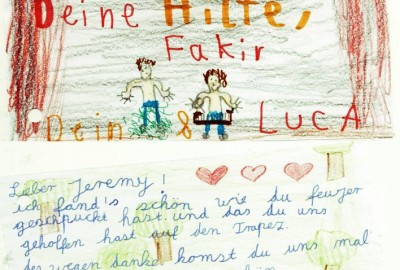 Deine Hilfe,
Fakir
Dein & LUCA
Lieber Jeremy!
ich fand's schön wie du feuer
gespuckt hast. und das du uns
geholfen hast auf den Trapez.
des wegen danke. komst du uns mal